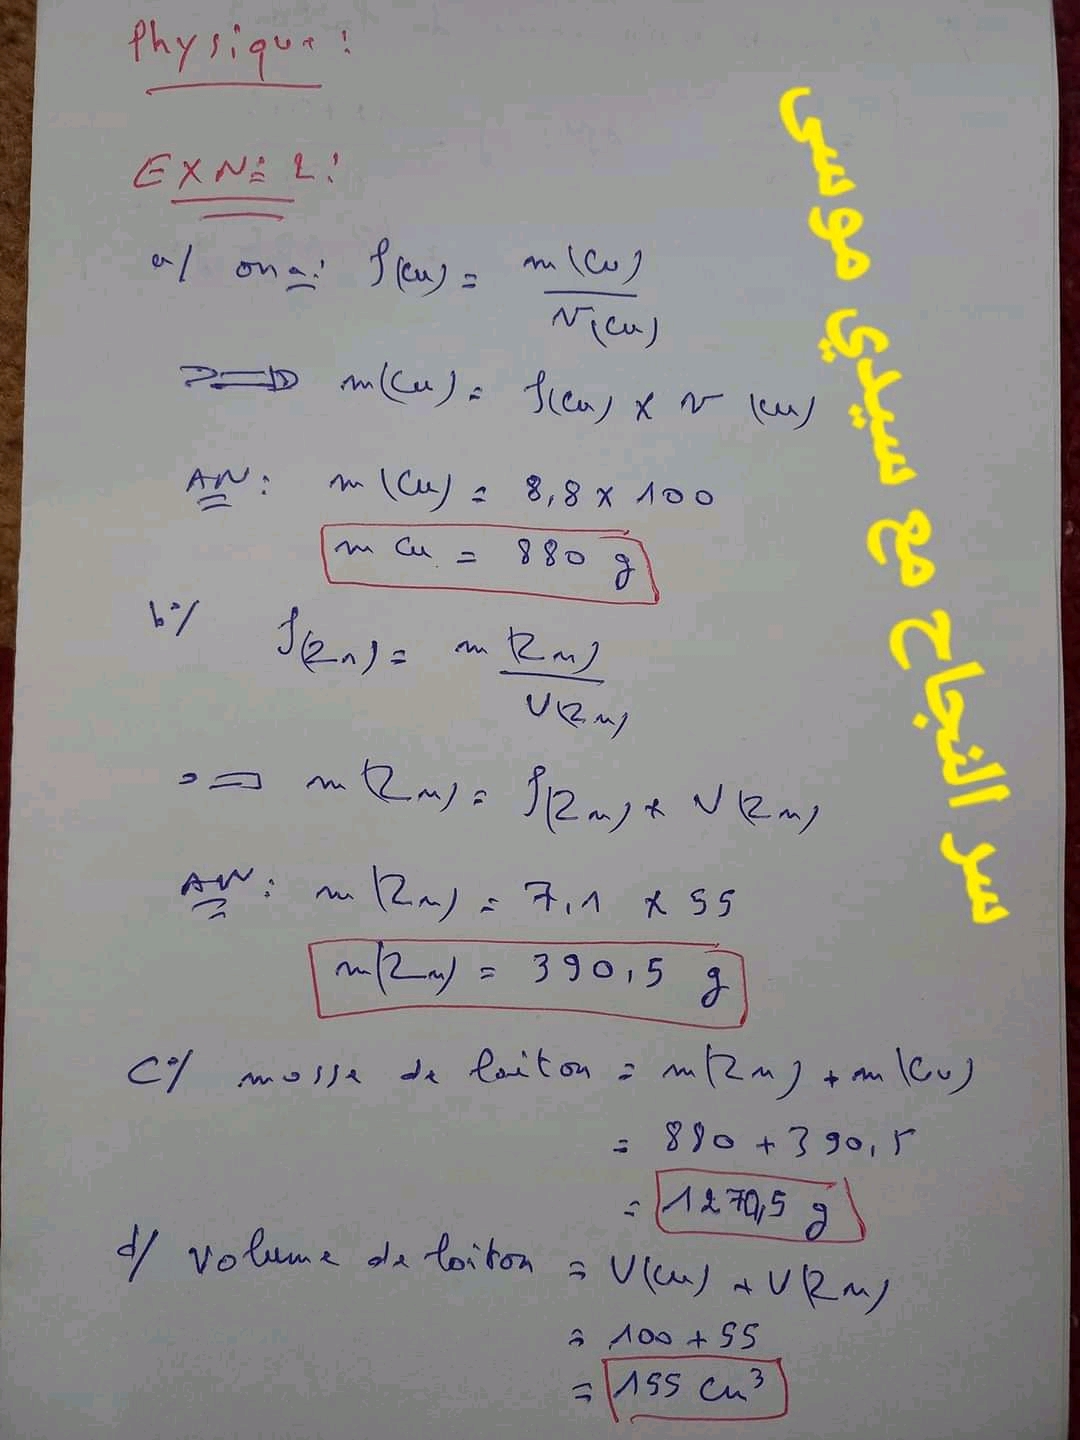 Physique :
EX N= 2 :
a/ on a : ρ(Cu) = m(Cu) / V(Cu)
=> m(Cu) = ρ(Cu) x V(Cu)
AN : m(Cu) = 8,8 x 100
m Cu = 880 g
b°/ ρ(Zn) = m(Zn) / V(Zn)
=> m(Zn) = ρ(Zn) x V(Zn)
AN : m(Zn) = 7,1 x 55
m(Zn) = 390,5 g
C°/ masse de laiton = m(Zn) + m(Cu)
= 880 + 390,5
= 1270,5 g
d/ Volume de laiton = V(Cu) + V(Zn)
= 100 + 55
= 155 cm³
سر النجاح مع سيدي موسى